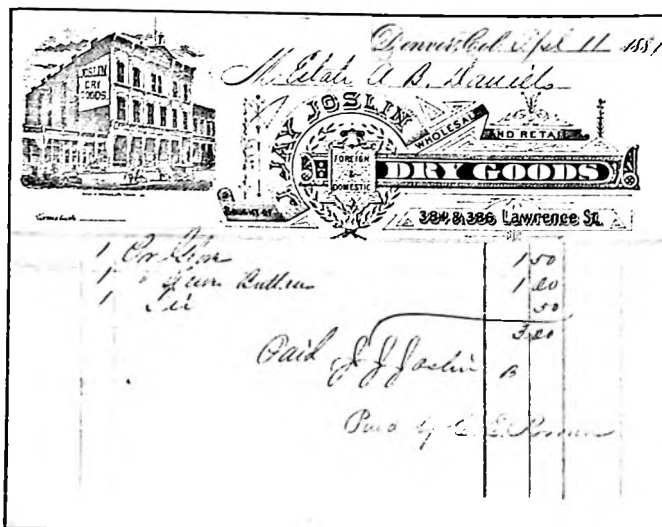 Denver, Col. Apl 11 1881
M Estate A. B. Daniels
JOSLIN
DRY
GOODS
J. JAY JOSLIN
WHOLESALE
AND RETAIL
FOREIGN
&
DOMESTIC
DRY GOODS
BOUGHT OF
384 & 386 Lawrence St.
Terms Cash
1 Pr 1 50
1 " Buttons 1 20
1 Tie 50
3.20
Paid J. J. Joslin
Paid by